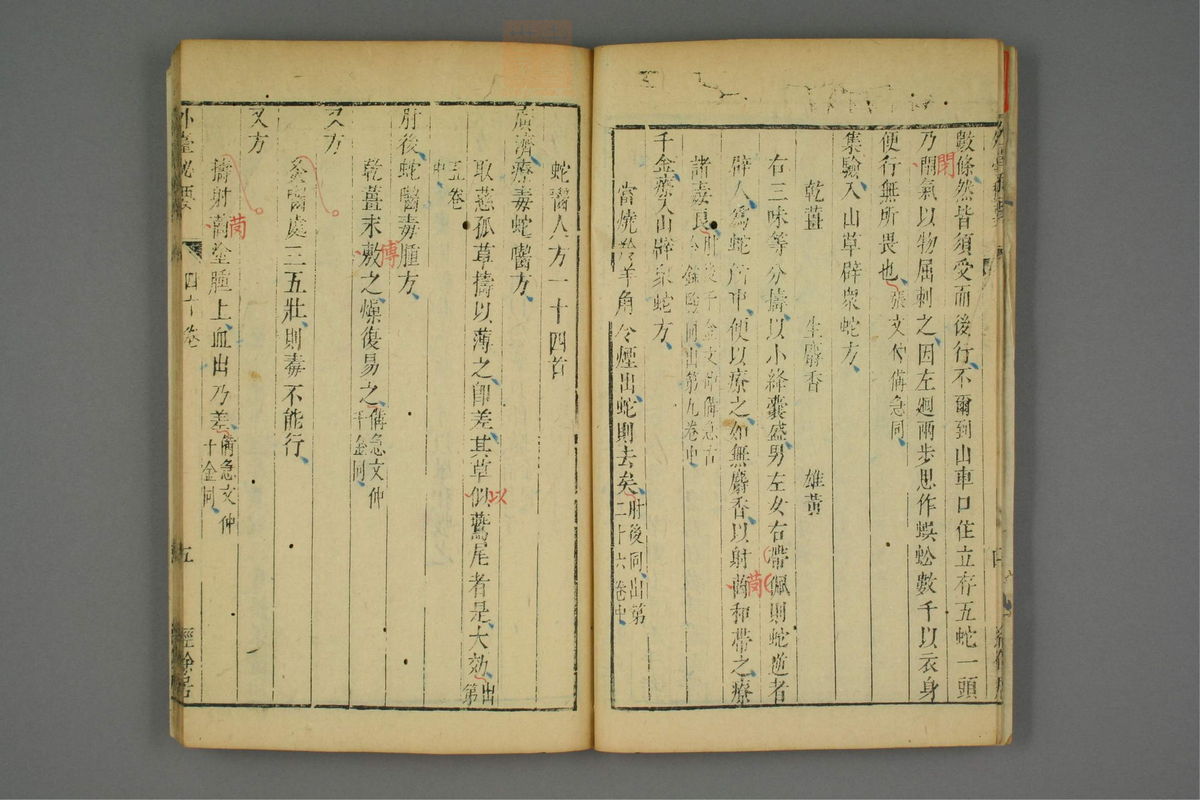 數條然皆須受而後行不爾到山車口住立存五蛇一頭
乃閉氣以物屈刺之因左廻兩步思作蜈蚣數千以衣身
便行無所畏也張文仲備急同
集驗入山草辟衆蛇方
乾薑 生麝香 雄黃
右三味等分擣以小絳囊盛男左女右帶佩則蛇逆走者
辟人爲蛇所中便以療之如無麝香以射茼和帶之療
諸毒良肘後千金文仲備急古今錄驗同出第九卷中
千金療入山辟衆蛇方
當燒羚羊角令煙出蛇則去矣肘後同出第二十六卷中
蛇嚙人方一十四首
廣濟療毒蛇嚙方
取慈孤草擣以薄之卽差其草似鷰尾者是大効出第
五卷中
肘後蛇嚙毒腫方
乾薑末敷之燥復易之備急文仲千金同
又方
灸嚙處三五壯則毒不能行
又方
擣射茼塗腫上血出乃差備急文仲千金同
外臺秘要 四十卷 五 經餘居